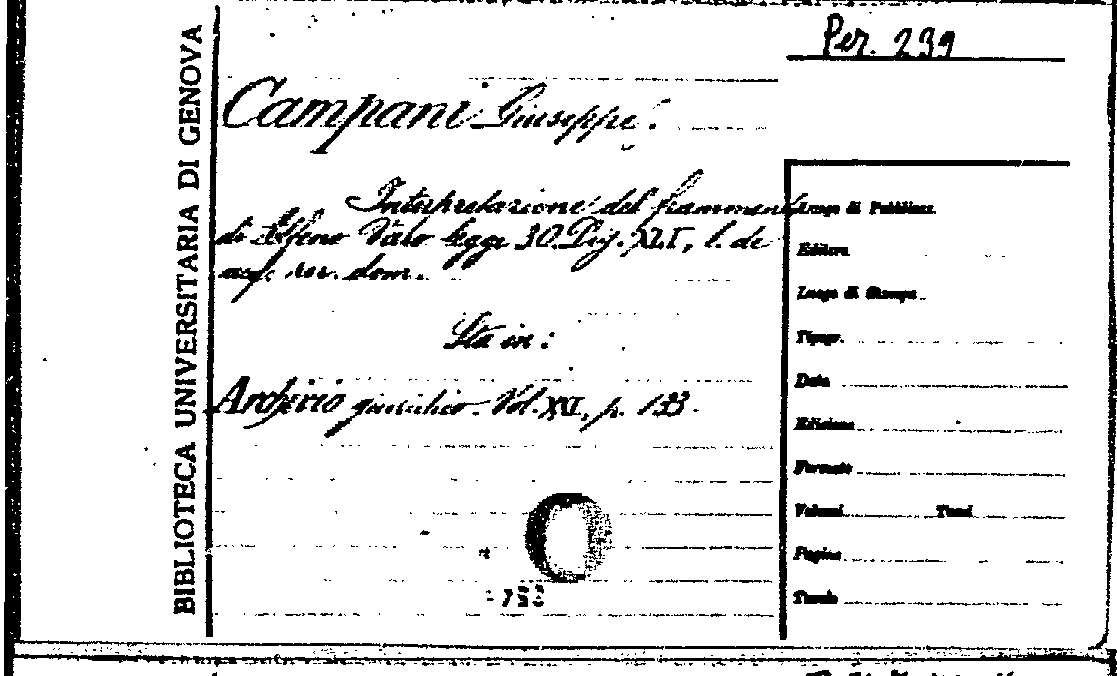 BIBLIOTECA UNIVERSITARIA DI GENOVA
Per. 239
Campani Giuseppe.
Interpretazione del frammento
di Alfeno Varo legge 30. Dig. XLI, l. de
acq. rer. dom.
Sta in:
Archivio giuridico. Vol. XVI, p. 133.
Luogo di Pubblicaz.
Editore
Luogo di Stampa
Tipogr.
Data
Edizione
Formato
Volumi Tomi
Pagine
Tavole